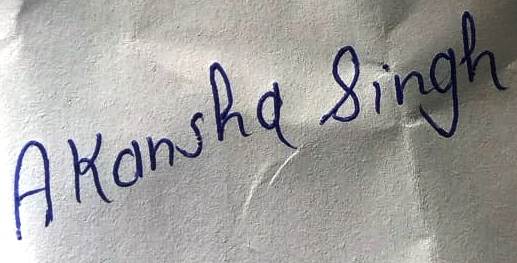 Akansha Singh